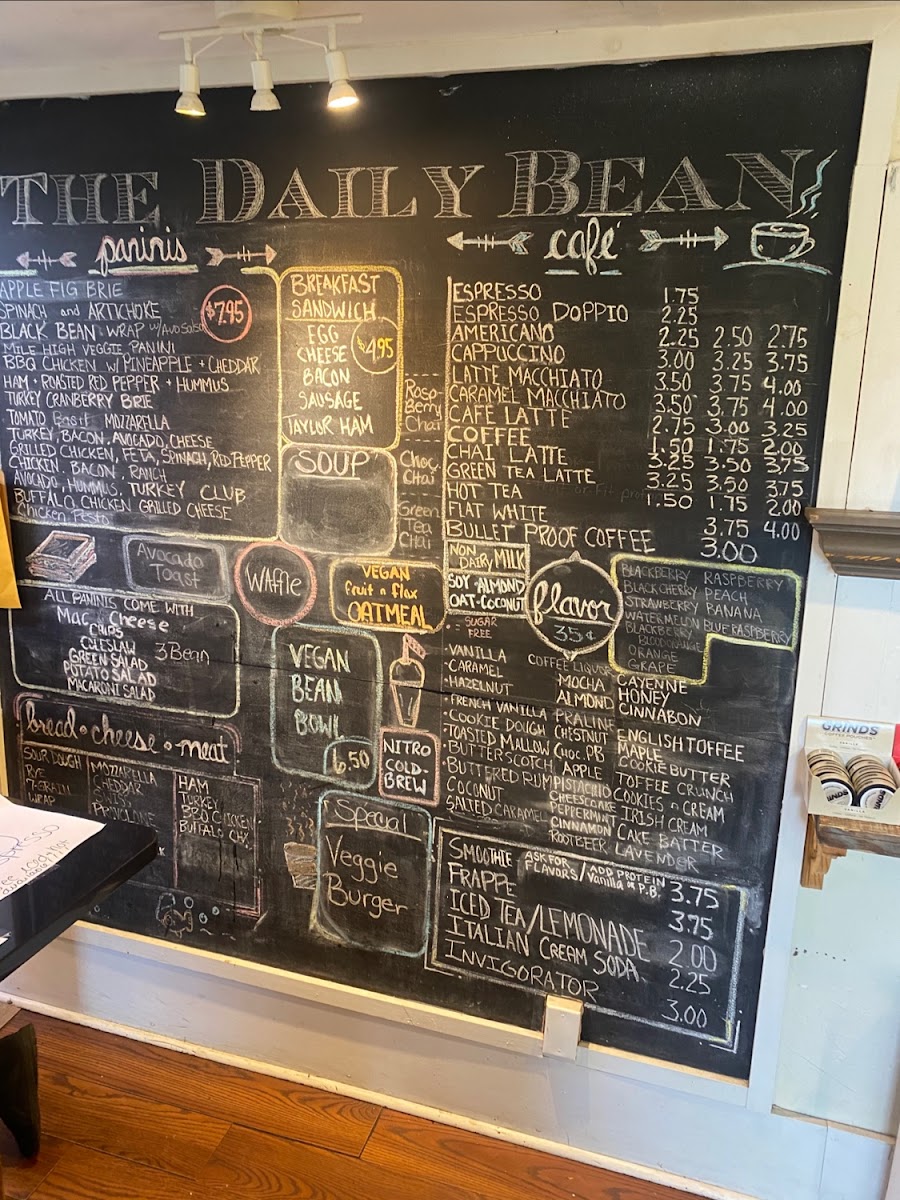 THE DAILY BEAN
paninis
APPLE FIG BRIE
SPINACH and ARTICHOKE
BLACK BEAN WRAP w/Avo Salsa
$7.95
MILE HIGH VEGGIE PANINI
BBQ CHICKEN W/ PINEAPPLE + CHEDDAR
HAM + ROASTED RED PEPPER + HUMMUS
TURKEY CRANBERRY BRIE
TOMATO Basil MOZARELLA
TURKEY, BACON, AVOCADO, CHEESE
GRILLED CHICKEN, FETA, SPINACH, RED PEPPER
CHICKEN BACON RANCH
AVOCADO, HUMMUS, TURKEY CLUB
BUFFALO CHICKEN GRILLED CHEESE
Chicken Pesto
BREAKFAST
SANDWICH
EGG
CHEESE
$4.95
BACON
SAUSAGE
TAYLOR HAM
SOUP
Rasp-
Berry
Chai
Choc.
Chai
Green
Tea
Chai
café
ESPRESSO 1.75
ESPRESSO DOPPIO 2.25
AMERICANO 2.25 2.50 2.75
CAPPUCCINO 3.00 3.25 3.75
LATTE MACCHIATO 3.50 3.75 4.00
CARAMEL MACCHIATO 3.50 3.75 4.00
CAFE LATTE 2.75 3.00 3.25
COFFEE 1.50 1.75 2.00
CHAI LATTE 3.25 3.50 3.75
GREEN TEA LATTE 3.25 3.50 3.75
HOT TEA 1.50 1.75 2.00
FLAT WHITE 3.75 4.00
BULLET PROOF COFFEE 3.00
Avocado
Toast
WAffle
VEGAN
fruit n flax
OATMEAL
NON
DAIRY MILK
SOY-ALMOND
OAT-COCONUT
flavor
35¢
BLACKBERRY RASPBERRY
BLACK CHERRY PEACH
STRAWBERRY BANANA
WATERMELON BLUE RASPBERRY
BLACKBERRY
ORANGE
GRAPE
ALL PANINIS COME WITH
Mac n cheese
CHIPS
COLESLAW
3 Bean
GREEN SALAD
POTATO SALAD
MACARONI SALAD
VEGAN
BEAN
BOWL
6.50
NITRO
COLD-
BREW
- SUGAR
FREE
VANILLA
·CARAMEL
·HAZELNUT
·FRENCH VANILLA
·COOKIE DOUGH
·TOASTED MALLOW
·BUTTERSCOTCH
BUTTERED RUM
COCONUT
SALTED CARAMEL
COFFEE LIQUEUR
MOCHA
ALMOND
PRALINE
CHESTNUT
CHOC. PB
APPLE
PISTACHIO
CHEESECAKE
PEPPERMINT
CINNAMON
ROOTBEER
CAYENNE
HONEY
CINNABON
ENGLISH TOFFEE
MAPLE
COOKIE BUTTER
TOFFEE CRUNCH
COOKIES n CREAM
IRISH CREAM
CAKE BATTER
LAVENDER
bread · cheese · meat
SOUR DOUGH
RYE
7-GRAIN
WRAP
MOZZARELLA
CHEDDAR
PROVOLONE
HAM
TURKEY
BBQ CHICKEN
BUFFALO CHX
Special
Veggie
Burger
SMOOTHIE ASK FOR FLAVORS/ADD PROTEIN Vanilla or P.B. 3.75
FRAPPE 3.75
ICED TEA/LEMONADE 2.00
ITALIAN CREAM SODA 2.25
INVIGORATOR 3.00
GRINDS